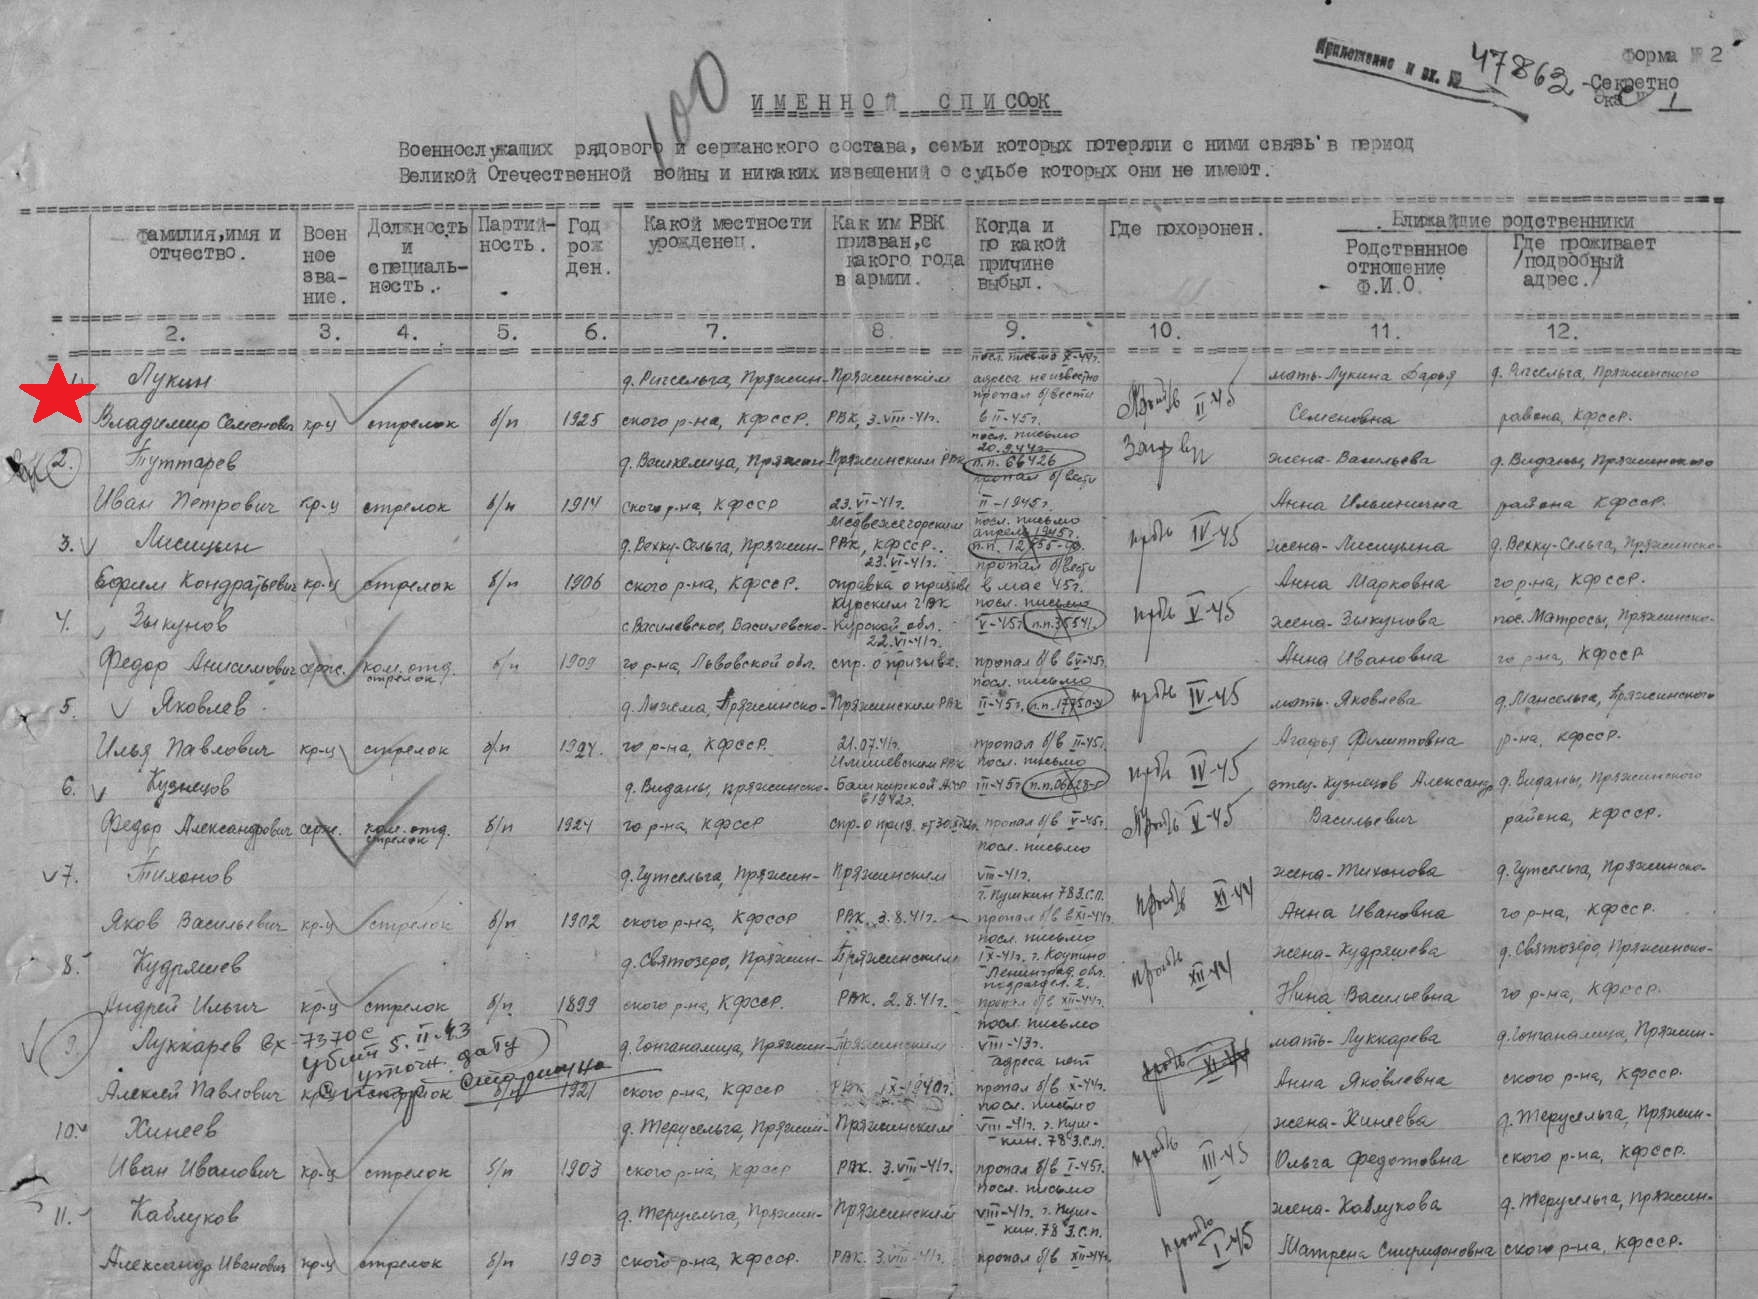 Приложение и вх. № 47863
форма № 2
-Секретно
экз 1
100
ИМЕННОЙ СПИСОК
Военнослужащих рядового и сержанского состава, семьи которых потеряли с ними связь в период
Великой Отечественной войны и никаких извещений о судьбе которых они не имеют.
фамилия, имя и отчество.
Воен ное зва- ние.
Должность и специаль- ность.
Партий- ность.
Год рож ден.
Какой местности урожденец.
Как им РВК призван, с какого года в армии.
Когда и по какой причине выбыл.
Где похоронен.
Ближайшие родственники
Родственное отношение Ф.И.О.
Где проживает /подробный адрес./
2. 3. 4. 5. 6. 7. 8. 9. 10. 11. 12.
посл. письмо X-44г.
1. Лукин д. Ригсельга, Пряжин- Пряжинским адреса неизвестно мать-Лукина Дарья д. Ригсельга, Пряжинского
пропал б/вести
Владимир Семенович кр-ц стрелок б/п 1925 ского р-на, КФССР. РВК, 3.VIII-41г. в II-45г. II-45 Семеновна района, КФССР.
посл. письмо
20.9.44г.
2. Туттарев Пряжинским РВК п.п. 66426 жена-Васильева д. Виданы, Пряжинского
пропал б/вести
Иван Петрович кр-ц стрелок б/п 1914 ского р-на, КФССР 23.VI-41г. II-1945г. Анна Ильинична района КФССР.
Медвежегорским посл. письмо
апрель 1945г.
3. Лисицын д. Вехку-Сельга, Пряжин- РВК, КФССР. п.п. IV-45 жена-Лисицына д. Вехку-Сельга, Пряжинско-
23.VI-41г. пропал б/вести
Ефрем Кондратьевич кр-ц стрелок б/п 1906 ского р-на, КФССР. справка о призыве в мае 45г. Анна Марковна го р-на, КФССР.
Курским ГВК посл. письмо
4. Зыкунов с Василевское, Василевско- Курской обл. V-45г. п.п. V-45 жена-Зыкунова пос. Матросы, Пряжинско-
22.VI-41г.
Федор Анисимович серж. ком. отд. стрелок б/п 1909 го р-на, Львовской обл. спр. о призыве. пропал б/в в V-45г. Анна Ивановна го р-на, КФССР
посл. письмо
5. Яковлев Пряжинско- Пряжинским РВК II-45г. п.п. IV-45 мать-Яковлева д. Мансельга, Пряжинского
Илья Павлович кр-ц стрелок б/п 1924. го р-на, КФССР. 21.07.41г. пропал б/в II-45г. Агафья Филипповна р-на, КФССР.
посл. письмо
6. Кузнецов д. Виданы, Пряжинско- Башкирской АССР III-45г. п.п. IV-45 отец-Кузнецов Александр д. Виданы, Пряжинского
в 1942г.
Федор Александрович серж. ком. отд. стрелок б/п 1924 го р-на, КФССР пропал б/в V-45г. V-45 Васильевич района, КФССР.
посл. письмо
7. Тихонов д. Гутсельга, Пряжин- Пряжинским VIII-41г. жена-Тихонова д. Гутсельга, Пряжинско-
г. Пушкин 78 З.С.П. XI-44
Яков Васильевич кр-ц стрелок б/п 1902 ского р-на, КФССР РВК. 3.8.41г. пропал б/в в XI-44г. Анна Ивановна го р-на, КФССР.
посл. письмо
8. Кудряшев д. Святозеро, Пряжин- Пряжинским IX-41г. жена-Кудряшева д. Святозеро, Пряжинско-
Ленинград. обл. XII-44
Андрей Ильич кр-ц стрелок б/п 1899 ского р-на, КФССР. РВК. 2.8.41г. пропал б/в XII-44г. Нина Васильевна го р-на, КФССР.
посл. письмо
9. Луккарев Вх-7370с д. Гонганалица, Пряжин- Пряжинским VIII-43г. мать-Луккарева д. Гонганалица, Пряжин-
убит 5.II.43 адреса нет XI-44
уточн. дату
Алексей Павлович кр-ц б/п 1921 ского р-на, КФССР РВК IX-1940г. пропал б/в X-44г. Анна Яковлевна ского р-на, КФССР.
посл. письмо
10. Хинеев д. Терусельга, Пряжин- Пряжинским VIII-41г. г. Пуш- жена-Хинеева д. Терусельга, Пряжин-
кин. 78 З.С.П. III-45
Иван Иванович кр-ц стрелок б/п 1903 ского р-на, КФССР РВК. 3.VIII-41г. пропал б/в I-45г. Ольга Федотовна ского р-на, КФССР.
посл. письмо
11. Каблуков д. Терусельга, Пряжин- Пряжинский VIII-41г. г. Пуш- жена-Каблукова д. Терусельга, Пряжин-
кин. 78 З.С.П. I-45
Александр Иванович кр-ц стрелок б/п 1903 ского р-на, КФССР. РВК. 3.VIII-41г. пропал б/в XII-44г. Матрена Спиридоновна ского р-на, КФССР.